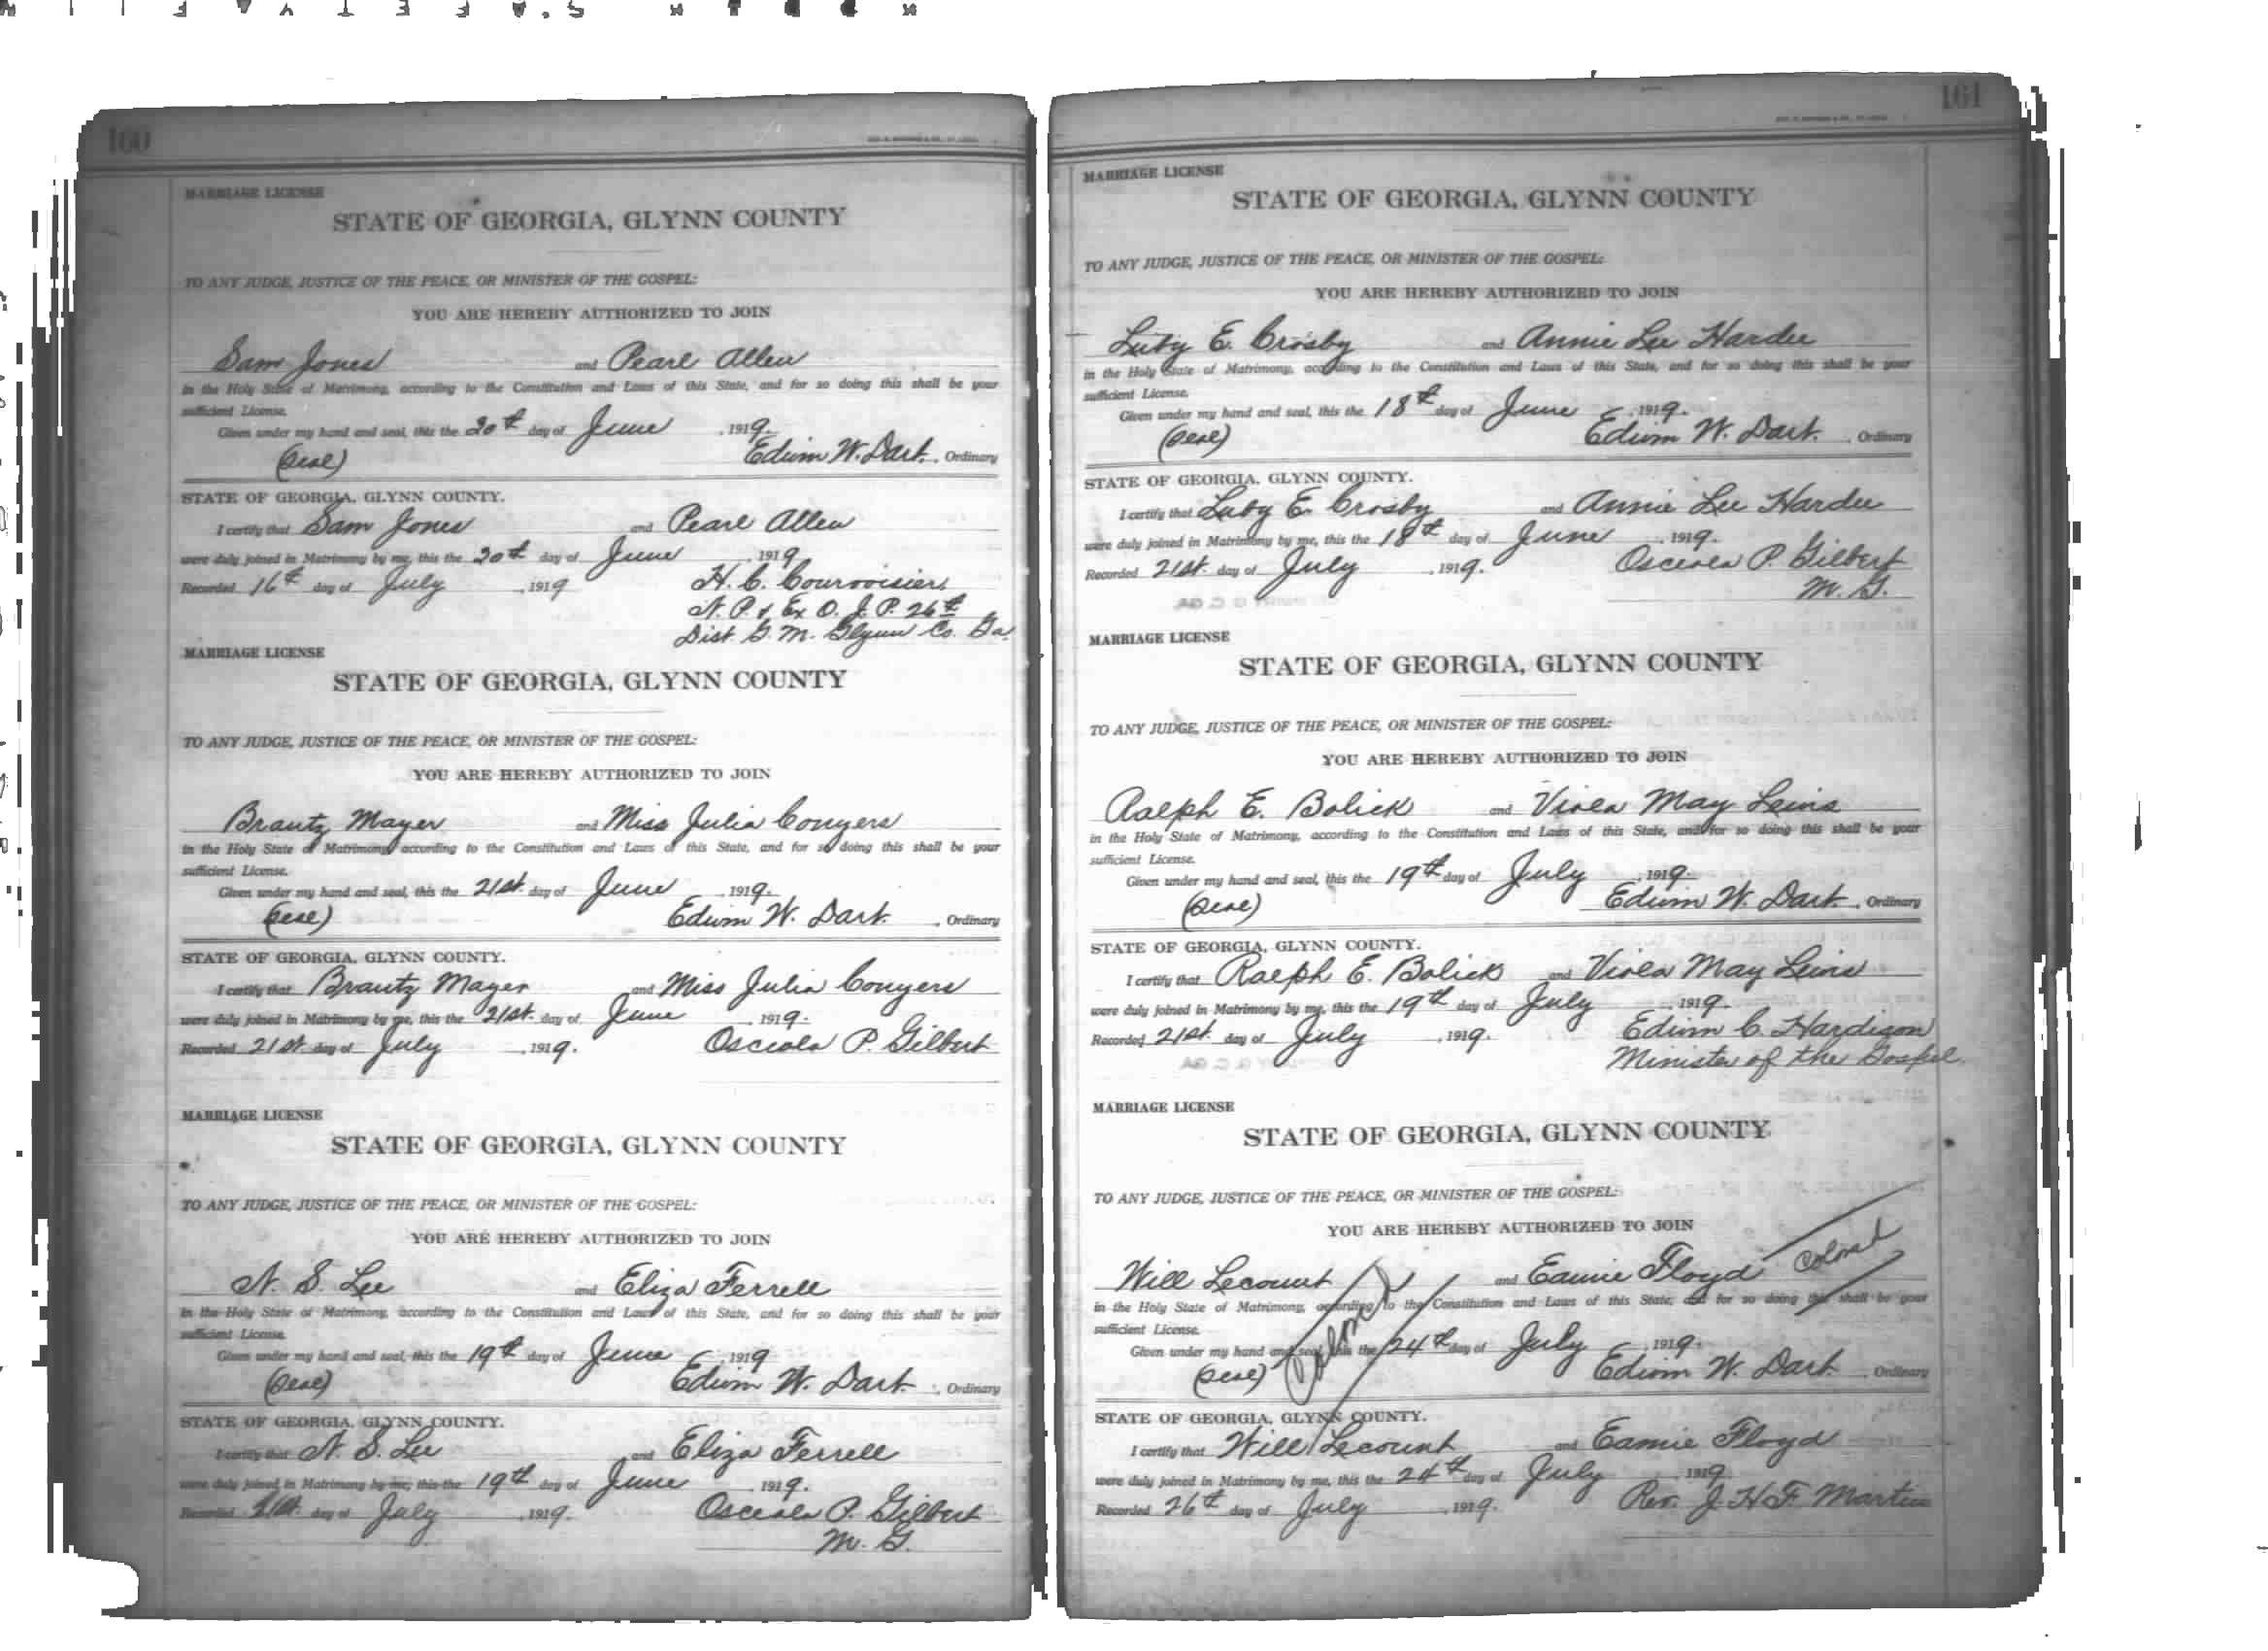 160
MARRIAGE LICENSE
STATE OF GEORGIA, GLYNN COUNTY
TO ANY JUDGE, JUSTICE OF THE PEACE, OR MINISTER OF THE GOSPEL:
YOU ARE HEREBY AUTHORIZED TO JOIN
Sam Jones and Pearl Allen
in the Holy State of Matrimony, according to the Constitution and Laws of this State, and for so doing this shall be your
sufficient License.
Given under my hand and seal, this the 20th day of June, 1919.
(Seal) Edwin W. Dart. Ordinary
STATE OF GEORGIA, GLYNN COUNTY.
I certify that Sam Jones and Pearl Allen
were duly joined in Matrimony by me, this the 20th day of June, 1919
Recorded 16th day of July, 1919 H. C. Courvoisier,
N. P. & Ex O. J. P. 26th
Dist. G. M. Glynn Co. Ga.
MARRIAGE LICENSE
STATE OF GEORGIA, GLYNN COUNTY
TO ANY JUDGE, JUSTICE OF THE PEACE, OR MINISTER OF THE GOSPEL:
YOU ARE HEREBY AUTHORIZED TO JOIN
Brantz Mayer and Miss Julia Conyers
in the Holy State of Matrimony, according to the Constitution and Laws of this State, and for so doing this shall be your
sufficient License.
Given under my hand and seal, this the 21st. day of June, 1919.
(Seal) Edwin W. Dart., Ordinary
STATE OF GEORGIA, GLYNN COUNTY.
I certify that Brantz Mayer and Miss Julia Conyers
were duly joined in Matrimony by me, this the 21st. day of June, 1919.
Recorded 21st. day of July, 1919. Osceola P. Gilbert
MARRIAGE LICENSE
STATE OF GEORGIA, GLYNN COUNTY
TO ANY JUDGE, JUSTICE OF THE PEACE, OR MINISTER OF THE GOSPEL:
YOU ARE HEREBY AUTHORIZED TO JOIN
N. S. Lee and Eliza Ferrell
in the Holy State of Matrimony, according to the Constitution and Laws of this State, and for so doing this shall be your
sufficient License.
Given under my hand and seal, this the 19th day of June, 1919
(Seal) Edwin W. Dart., Ordinary
STATE OF GEORGIA, GLYNN COUNTY.
I certify that N. S. Lee and Eliza Ferrell
were duly joined in Matrimony by me, this the 19th day of June, 1919.
Recorded 21st. day of July, 1919. Osceola P. Gilbert
M. G.
161
MARRIAGE LICENSE
STATE OF GEORGIA, GLYNN COUNTY
TO ANY JUDGE, JUSTICE OF THE PEACE, OR MINISTER OF THE GOSPEL:
YOU ARE HEREBY AUTHORIZED TO JOIN
Luby E. Crosby and Annie Lee Hardee
in the Holy State of Matrimony, according to the Constitution and Laws of this State, and for so doing this shall be your
sufficient License.
Given under my hand and seal, this the 18th day of June, 1919.
(Seal) Edwin W. Dart., Ordinary
STATE OF GEORGIA, GLYNN COUNTY.
I certify that Luby E. Crosby and Annie Lee Hardee
were duly joined in Matrimony by me, this the 18th day of June, 1919.
Recorded 21st. day of July, 1919. Osceola P. Gilbert
M. G.
MARRIAGE LICENSE
STATE OF GEORGIA, GLYNN COUNTY
TO ANY JUDGE, JUSTICE OF THE PEACE, OR MINISTER OF THE GOSPEL:
YOU ARE HEREBY AUTHORIZED TO JOIN
Ralph E. Bolick and Viola May Lewis
in the Holy State of Matrimony, according to the Constitution and Laws of this State, and for so doing this shall be your
sufficient License.
Given under my hand and seal, this the 19th day of July, 1919.
(Seal) Edwin W. Dart., Ordinary
STATE OF GEORGIA, GLYNN COUNTY.
I certify that Ralph E. Bolick and Viola May Lewis
were duly joined in Matrimony by me, this the 19th day of July, 1919.
Recorded 21st. day of July, 1919. Edwin C. Hardison
Minister of the Gospel.
MARRIAGE LICENSE
STATE OF GEORGIA, GLYNN COUNTY
TO ANY JUDGE, JUSTICE OF THE PEACE, OR MINISTER OF THE GOSPEL:
YOU ARE HEREBY AUTHORIZED TO JOIN
Will Lecount and Eamie Floyd Colored
in the Holy State of Matrimony, according to the Constitution and Laws of this State, and for so doing this shall be your
sufficient License. Colored
Given under my hand and seal, this the 24th day of July, 1919.
(Seal) Edwin W. Dart., Ordinary
STATE OF GEORGIA, GLYNN COUNTY.
I certify that Will Lecount and Eamie Floyd
were duly joined in Matrimony by me, this the 24th day of July, 1919
Recorded 26th day of July, 1919. Rev. J. H. F. Martin